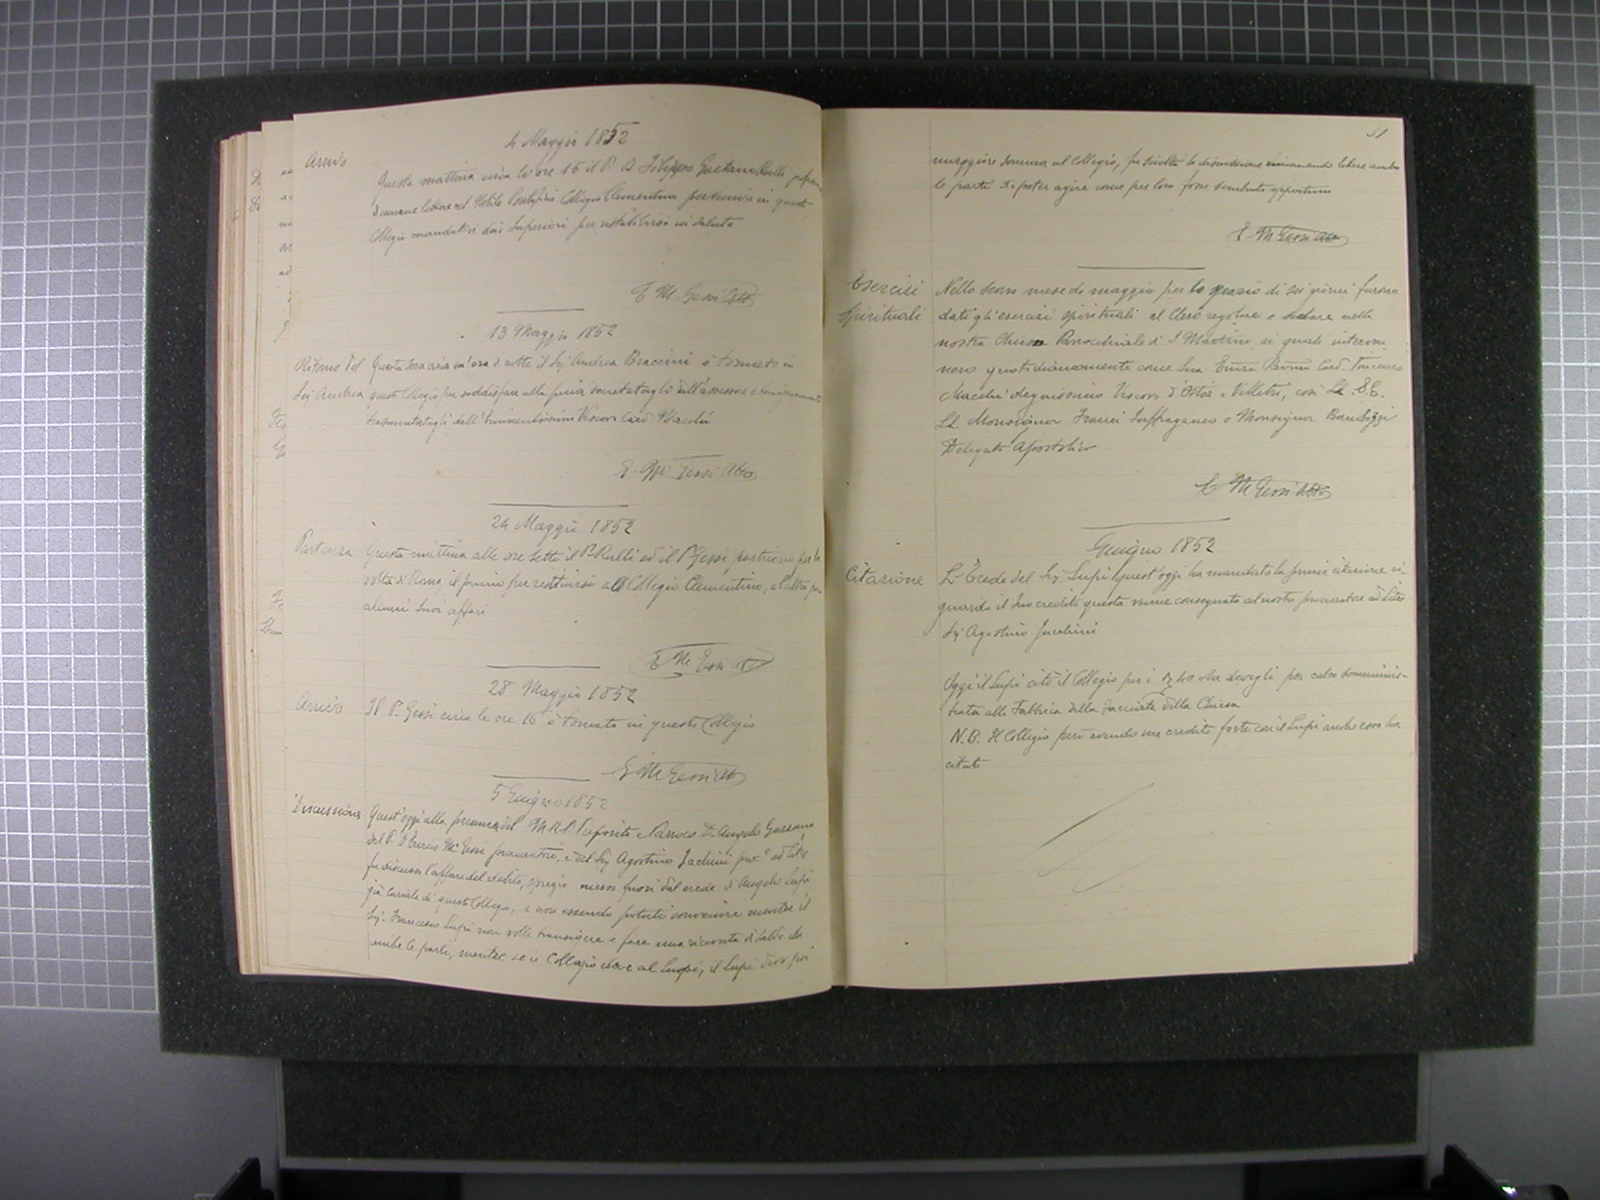 4 Maggio 1852
Arrivo
Questa mattina circa le ore 16 il P. D. Filippo Gaetano Rulli
d'umane lettere nel Nobile Pontificio Collegio Clementino perveniva in questo
Collegio mandatovi dai Superiori per ristabilirsi in salute
E. M. Gessi Atto
13 Maggio 1852
Ritorno del Questa sera circa un'ora di notte il Sig. Andrea Braccini è tornato in
Sig. Andrea questo Collegio per soddisfare alla
trasmutatagli dall'Eminentissimo Vescovo Card. Macchi
E. M. Gessi Atto
24 Maggio 1852
Partenza Questa mattina alle ore sette il P. Rulli ed il P. Gessi partirono per la
volta di Roma, il primo per restituirsi al Collegio Clementino, e l'altro per
alcuni suoi affari
E. M. Gessi Atto
28 Maggio 1852
Arrivo Il P. Gessi circa le ore 16 è tornato in questo Collegio
E. M. Gessi Atto
5 Giugno 1852
Discussione Quest'oggi alla presenza del M.R.P. Preposito e Parroco D. Angelo
del P. D. Enrico M. Gessi procuratore, e del Sig. Agostino Jachini proc.e ad lites
fu discusso l'affare del debito, messo fuori dal erede di Angelo Lupi
già di questo Collegio, e non essendo potuti convenire mentre il
Sig. Francesco Lupi non volle transigere e fare una ricevuta di saldo da
ambe le parti, mentre se il Collegio deve al Lupi, il Lupi deve poi
51
maggiore somma al Collegio, fu sciolta la discussione rimanendo libere ambo
le parti di poter agire come per loro fosse sembrato opportuno
E. M. Gessi Atto
Esercizi
Spirituali
Nello scorso mese di maggio per lo spazio di sei giorni furono
dati gli esercizi spirituali al Clero regolare e secolare nella
nostra Chiesa Parrocchiale di S. Martino, ai quali interven-
nero quotidianamente come Sua Emza Card.
Macchi degnissimo Vescovo d'Ostia e Velletri, con LL. EE.
LL. Monsignor Suffraganeo e Monsignor
Delegato Apostolico
E. M. Gessi Atto
Giugno 1852
Citazione
L'Erede del Sig. Lupi quest'oggi ha mandato la prima citazione ri-
guardo il suo credito questa venne consegnata al nostro procuratore ad lites
Sig. Agostino Jachini
Oggi il Lupi citò il Collegio per i 40 che devegli per calce somminis-
trata alla Fabbrica della facciata della Chiesa
N.B. Il Collegio però avendo un credito forte con il Lupi anche esso ha
citato